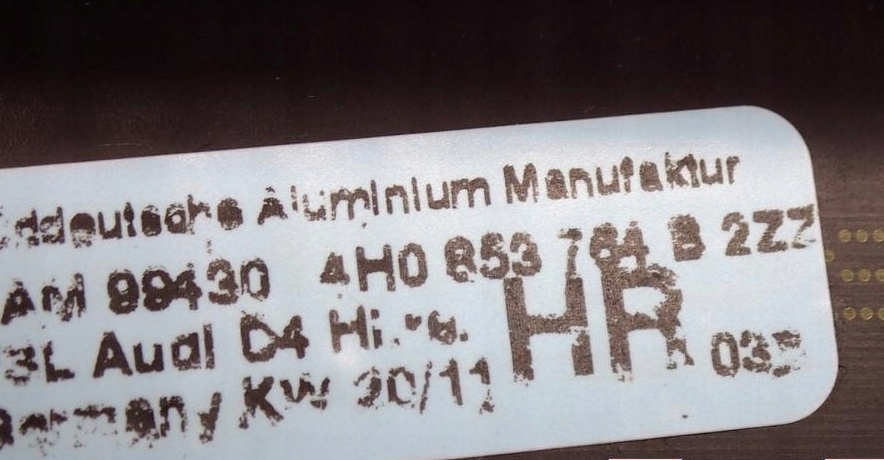 üddeutsche Aluminium Manufaktur
AM 99430 4H0 853 764 B 2ZZ
L Audi D4 Hi.re. HR
Germany KW 20/11